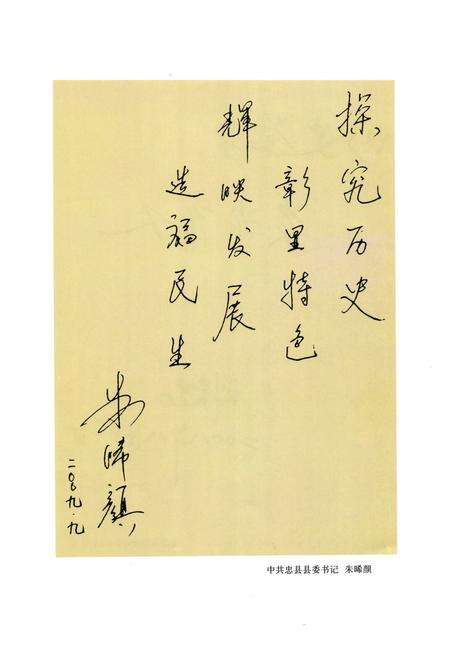 探究历史
彰显特色
辉映发展
造福民生
朱晞颜
二〇〇九.九
中共忠县县委书记 朱晞颜